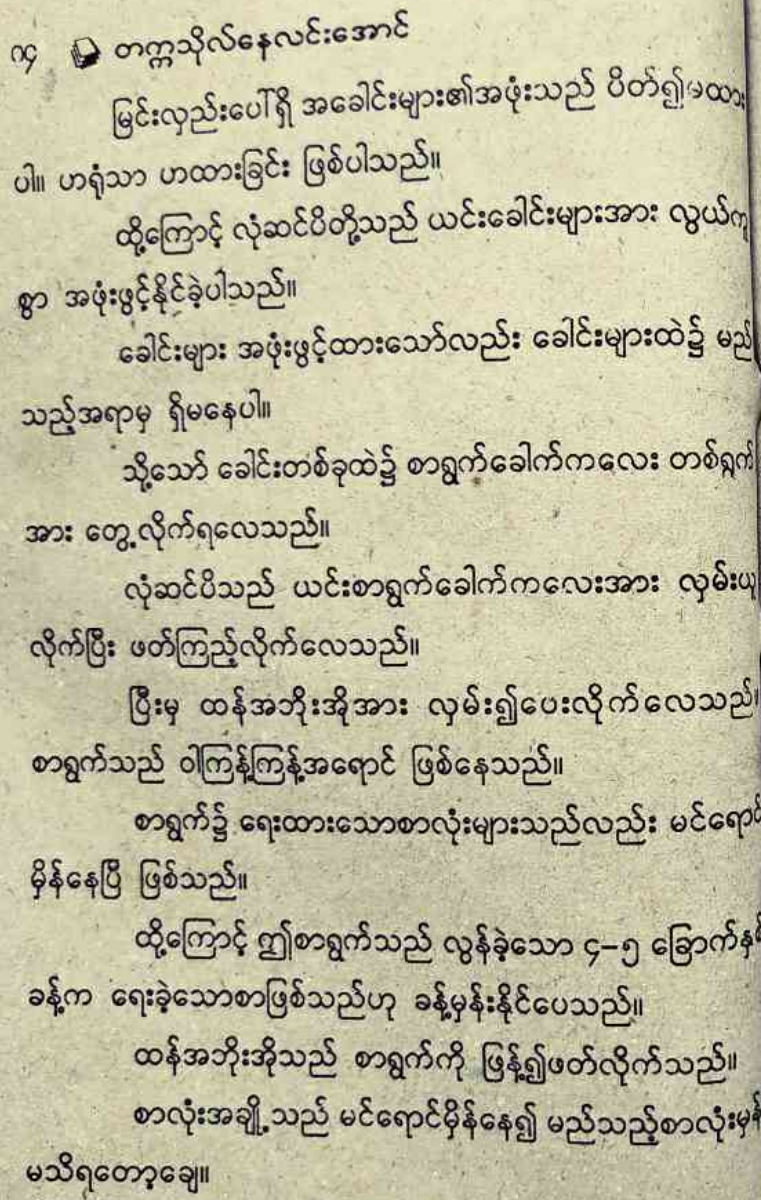 ၈၄ တက္ကသိုလ်နေလင်းအောင်
မြင်းလှည်းပေါ်ရှိ အခေါင်းများ၏အဖုံးသည် ပိတ်၍မထား
ပါ။ ဟရုံသာ ဟထားခြင်း ဖြစ်ပါသည်။
ထို့ကြောင့် လုံဆင်ပိတို့သည် ယင်းခေါင်းများအား လွယ်ကူ
စွာ အဖုံးဖွင့်နိုင်ခဲ့ပါသည်။
ခေါင်းများ အဖုံးဖွင့်ထားသော်လည်း ခေါင်းများထဲ၌ မည်
သည့်အရာမှ ရှိမနေပါ။
သို့သော် ခေါင်းတစ်ခုထဲ၌ စာရွက်ခေါက်ကလေး တစ်ရွက်
အား တွေ့လိုက်ရလေသည်။
လုံဆင်ပိသည် ယင်းစာရွက်ခေါက်ကလေးအား လှမ်းယူ
လိုက်ပြီး ဖတ်ကြည့်လိုက်လေသည်။
ပြီးမှ ထန်အဘိုးအိုအား လှမ်း၍ပေးလိုက်လေသည်။
စာရွက်သည် ဝါကြန့်ကြန့်အရောင် ဖြစ်နေသည်။
စာရွက်၌ ရေးထားသောစာလုံးများသည်လည်း မင်ရောင်
မှိန်နေပြီ ဖြစ်သည်။
ထို့ကြောင့် ဤစာရွက်သည် လွန်ခဲ့သော ၄–၅ ခြောက်နှစ်
ခန့်က ရေးခဲ့သောစာဖြစ်သည်ဟု ခန့်မှန်းနိုင်ပေသည်။
ထန်အဘိုးအိုသည် စာရွက်ကို ဖြန့်၍ဖတ်လိုက်သည်။
စာလုံးအချို့သည် မင်ရောင်မှိန်နေ၍ မည်သည့်စာလုံးမှန်
မသိရတော့ချေ။